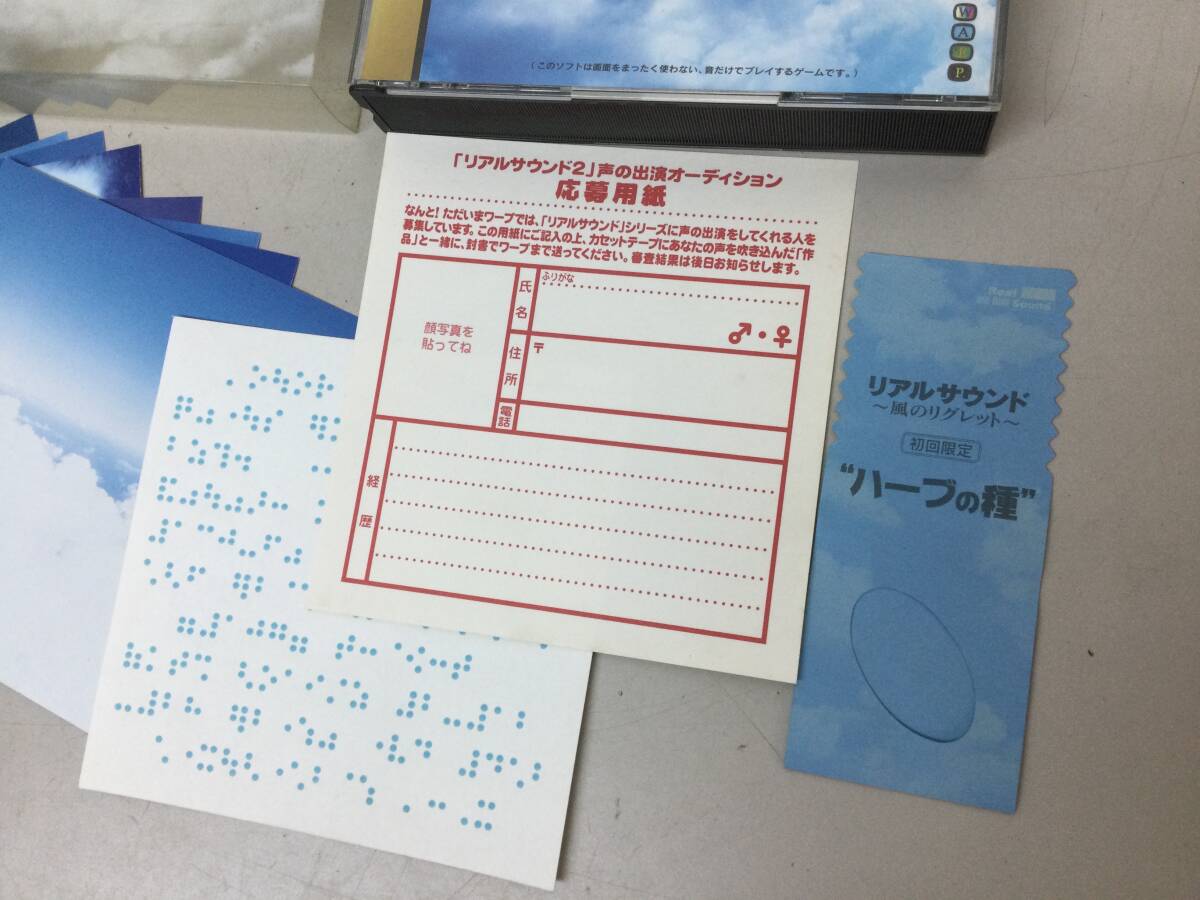 W
A
R
P
(このソフトは画面をまったく使わない、音だけでプレイするゲームです。)
「リアルサウンド2」声の出演オーディション
応募用紙
なんと!ただいまワープでは、「リアルサウンド」シリーズに声の出演をしてくれる人を
募集しています。この用紙にご記入の上、カセットテープにあなたの声を吹き込んだ「作
品」と一緒に、封書でワープまで送ってください。審査結果は後日お知らせします。
顔写真を
貼ってね
氏名
ふりがな
♂・♀
住所
〒
電話
経歴
Real
Sound
リアルサウンド
〜風のリグレット〜
初回限定
“ハーブの種”